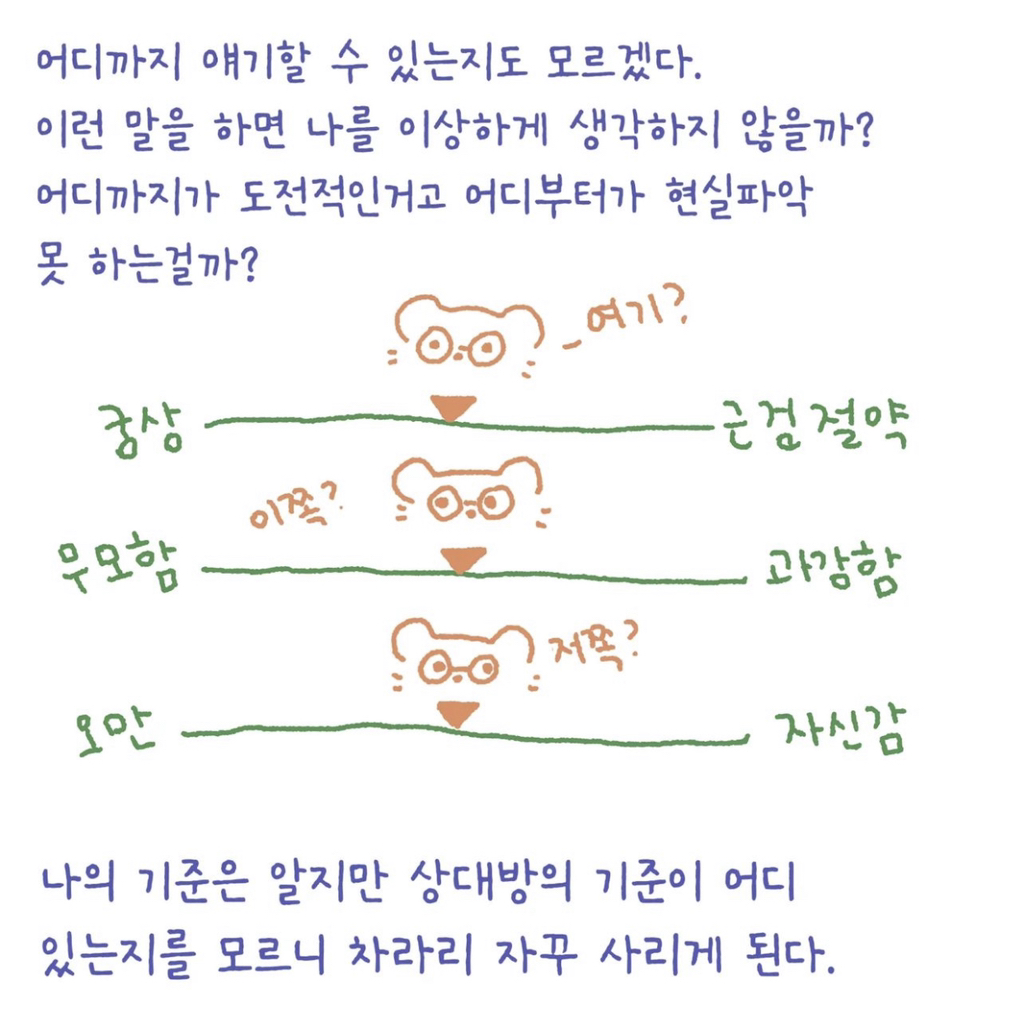 어디까지 얘기할 수 있는지도 모르겠다.
이런 말을 하면 나를 이상하게 생각하지 않을까?
어디까지가 도전적인거고 어디부터가 현실파악
못 하는걸까?
여기?
궁상 근검절약
이쪽?
무모함 과감함
저쪽?
오만 자신감
나의 기준은 알지만 상대방의 기준이 어디
있는지를 모르니 차라리 자꾸 사리게 된다.